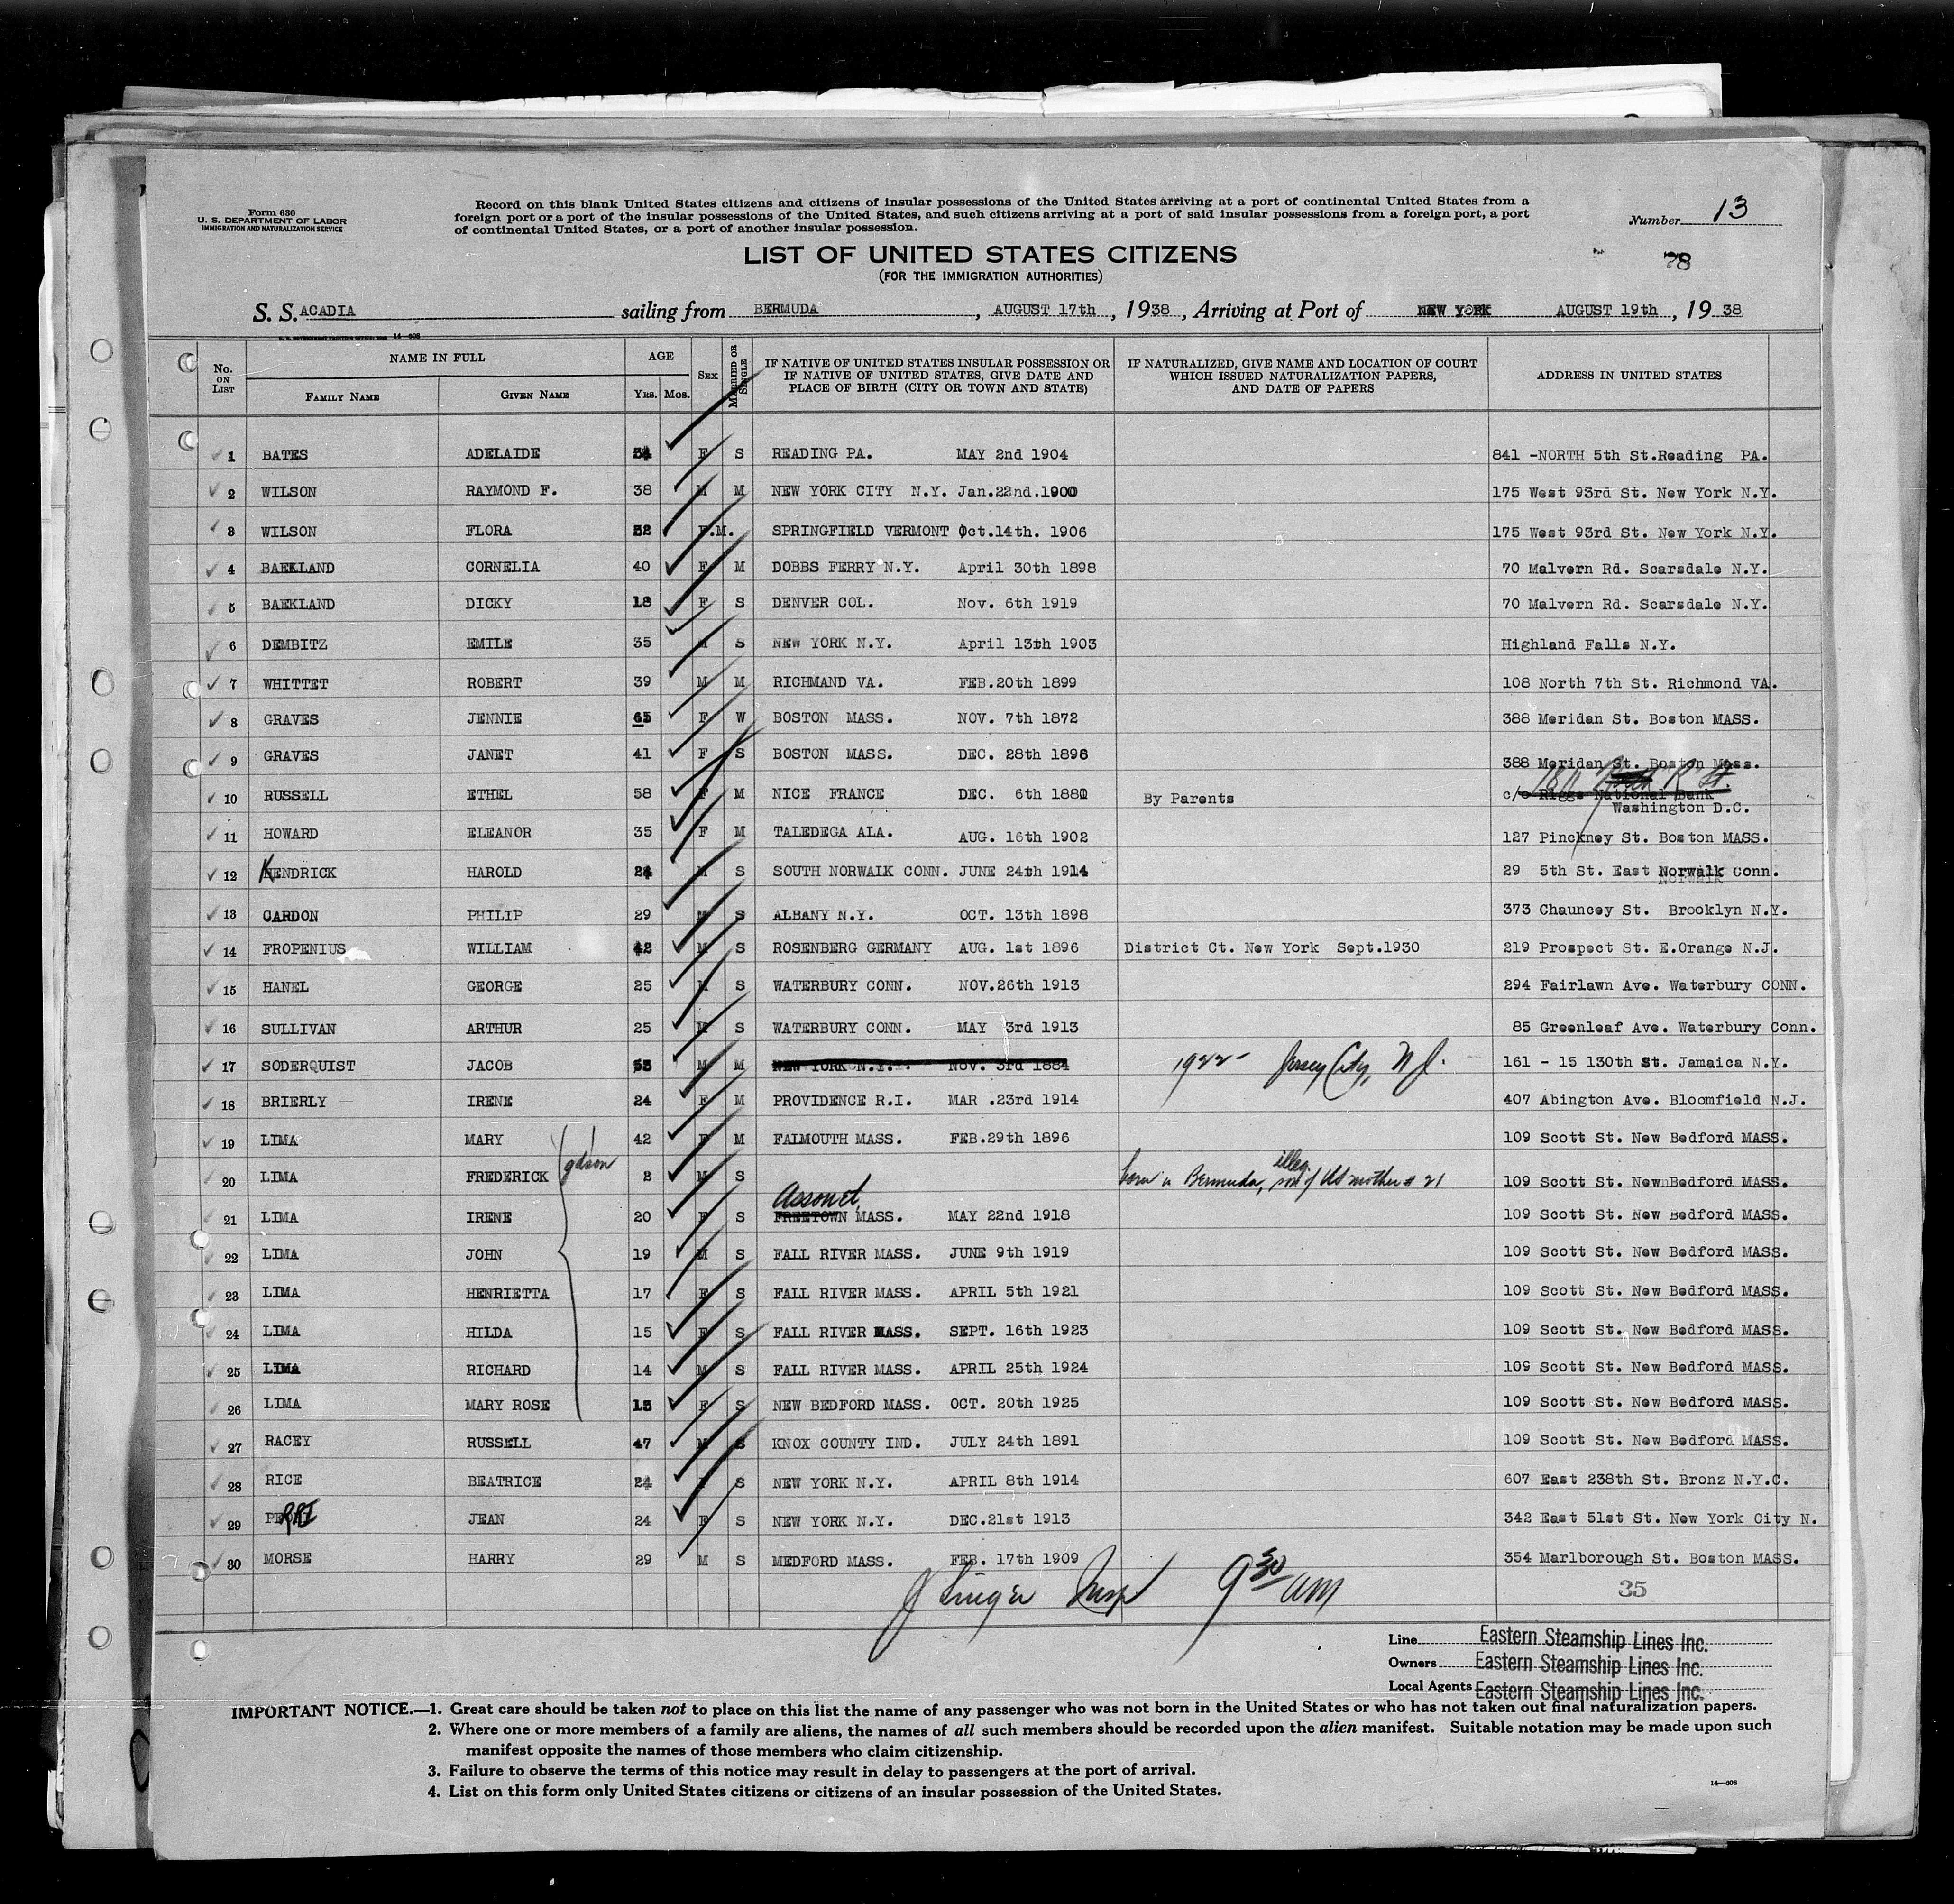 Form 630
U. S. DEPARTMENT OF LABOR
IMMIGRATION AND NATURALIZATION SERVICE
Record on this blank United States citizens and citizens of insular possessions of the United States arriving at a port of continental United States from a
foreign port or a port of the insular possessions of the United States, and such citizens arriving at a port of said insular possessions from a foreign port, a port
of continental United States, or a port of another insular possession.
Number 13
78
LIST OF UNITED STATES CITIZENS
(FOR THE IMMIGRATION AUTHORITIES)
S. S. ACADIA sailing from BERMUDA, AUGUST 17th, 1938, Arriving at Port of NEW YORK AUGUST 19th, 1938
No. ON LIST
NAME IN FULL
FAMILY NAME
GIVEN NAME
AGE
YRS. MOS.
SEX
MARRIED OR SINGLE
IF NATIVE OF UNITED STATES INSULAR POSSESSION OR
IF NATIVE OF UNITED STATES, GIVE DATE AND
PLACE OF BIRTH (CITY OR TOWN AND STATE)
IF NATURALIZED, GIVE NAME AND LOCATION OF COURT
WHICH ISSUED NATURALIZATION PAPERS,
AND DATE OF PAPERS
ADDRESS IN UNITED STATES
1 BATES ADELAIDE 34 F S READING PA. MAY 2nd 1904 841 -NORTH 5th St.Reading PA.
2 WILSON RAYMOND F. 38 M M NEW YORK CITY N.Y. Jan.22nd.1900 175 West 93rd St. New York N.Y.
3 WILSON FLORA 32 F.M. SPRINGFIELD VERMONT Oct.14th. 1906 175 West 93rd St. New York N.Y.
4 BAEKLAND CORNELIA 40 F M DOBBS FERRY N.Y. April 30th 1898 70 Malvern Rd. Scarsdale N.Y.
5 BAEKLAND DICKY 18 F S DENVER COL. Nov. 6th 1919 70 Malvern Rd. Scarsdale N.Y.
6 DEMBITZ EMILE 35 M S NEW YORK N.Y. April 13th 1903 Highland Falls N.Y.
7 WHITTET ROBERT 39 M M RICHMAND VA. FEB.20th 1899 108 North 7th St. Richmond VA.
8 GRAVES JENNIE 65 F W BOSTON MASS. NOV. 7th 1872 388 Meridan St. Boston MASS.
9 GRAVES JANET 41 F S BOSTON MASS. DEC. 28th 1896 388 Meridan St. Boston Mass.
10 RUSSELL ETHEL 58 F M NICE FRANCE DEC. 6th 1880 By Parents c/o Riggs National Bank
R St.
Washington D.C.
11 HOWARD ELEANOR 35 F M TALEDEGA ALA. AUG. 16th 1902 127 Pinckney St. Boston MASS.
12 KENDRICK HAROLD 24 M S SOUTH NORWALK CONN. JUNE 24th 1914 29 5th St. East Norwalk Conn.
13 CARDON PHILIP 29 M S ALBANY N.Y. OCT. 13th 1898 373 Chauncey St. Brooklyn N.Y.
14 FROPENIUS WILLIAM 42 M S ROSENBERG GERMANY AUG. 1st 1896 District Ct. New York Sept.1930 219 Prospect St. E.Orange N.J.
15 HANEL GEORGE 25 M S WATERBURY CONN. NOV.26th 1913 294 Fairlawn Ave. Waterbury CONN.
16 SULLIVAN ARTHUR 25 M S WATERBURY CONN. MAY 3rd 1913 85 Greenleaf Ave. Waterbury Conn.
17 SODERQUIST JACOB 53 M M NEW YORK N.Y. NOV. 3rd 1884 1922 - Jersey City, N J. 161 - 15 130th St. Jamaica N.Y.
18 BRIERLY IRENE 24 F M PROVIDENCE R.I. MAR .23rd 1914 407 Abington Ave. Bloomfield N.J.
19 LIMA MARY 42 F M FALMOUTH MASS. FEB.29th 1896 109 Scott St. New Bedford MASS.
20 LIMA FREDERICK gdson 2 M S born in Bermuda, illeg. son of US mother # 21 109 Scott St. NewnBedford MASS.
21 LIMA IRENE 20 F S Assonet, FREETOWN MASS. MAY 22nd 1918 109 Scott St. New Bedford MASS.
22 LIMA JOHN 19 M S FALL RIVER MASS. JUNE 9th 1919 109 Scott St. New Bedford MASS.
23 LIMA HENRIETTA 17 F S FALL RIVER MASS. APRIL 5th 1921 109 Scott St. New Bedford MASS.
24 LIMA HILDA 15 F S FALL RIVER MASS. SEPT. 16th 1923 109 Scott St. New Bedford MASS.
25 LIMA RICHARD 14 M S FALL RIVER MASS. APRIL 25th 1924 109 Scott St. New Bedford MASS.
26 LIMA MARY ROSE F S NEW BEDFORD MASS. OCT. 20th 1925 109 Scott St. New Bedford MASS.
27 RACEY RUSSELL 47 M S KNOX COUNTY IND. JULY 24th 1891 109 Scott St. New Bedford MASS.
28 RICE BEATRICE 24 F S NEW YORK N.Y. APRIL 8th 1914 607 East 238th St. Bronz N.Y.C.
29 JEAN 24 F S NEW YORK N.Y. DEC.21st 1913 342 East 51st St. New York City N.
30 MORSE HARRY 29 M S MEDFORD MASS. FEB. 17th 1909 354 Marlborough St. Boston MASS.
J Singer Insp 9 30 am
35
Line Eastern Steamship Lines Inc.
Owners Eastern Steamship Lines Inc.
Local Agents Eastern Steamship Lines Inc.
IMPORTANT NOTICE.—1. Great care should be taken not to place on this list the name of any passenger who was not born in the United States or who has not taken out final naturalization papers.
2. Where one or more members of a family are aliens, the names of all such members should be recorded upon the alien manifest. Suitable notation may be made upon such
manifest opposite the names of those members who claim citizenship.
3. Failure to observe the terms of this notice may result in delay to passengers at the port of arrival.
4. List on this form only United States citizens or citizens of an insular possession of the United States.
14—608